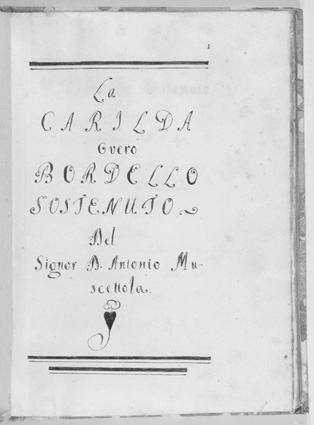 1
La
CARILDA
Overo
BORDELLO
SOSTENUTO
Del
Signor D. Antonio Mu-
scettola.